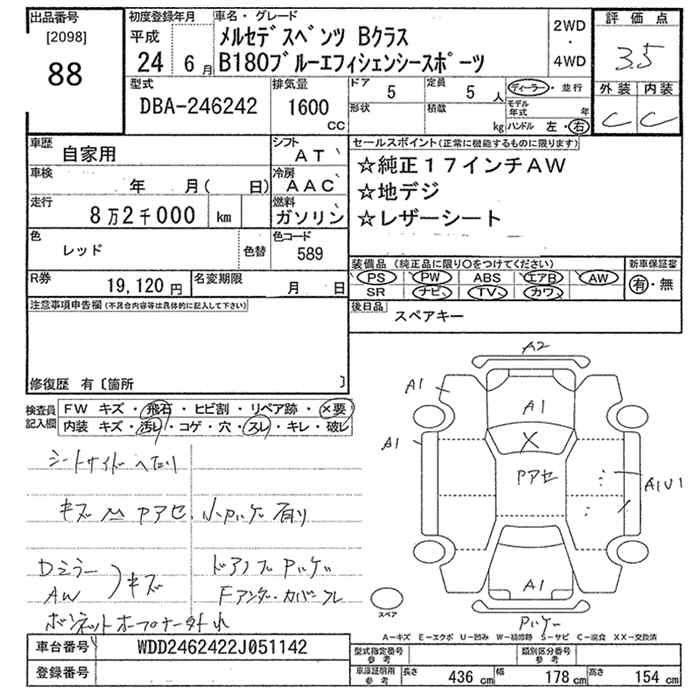 出品番号
[2098]
88
初度登録年月
平成
24 6月
車名・グレード
メルセデスベンツ Bクラス
B180ブルーエフィシェンシースポーツ
2WD
・
4WD
評価点
3.5
外装 内装
C C
型式
DBA-246242
排気量
1600
CC
ドア 5
定員 5 人
形状
積載 kg
ディーラー・並行
モデル年式 年
ハンドル 左・右
車歴
自家用
シフト
AT
車検
年 月( 日)
冷房
AAC
走行
8万2千000 km
燃料
ガソリン
色
レッド
色替
色コード
589
R券
19,120円
名変期限
月 日
セールスポイント(正常に機能するものに限ります)
☆純正17インチAW
☆地デジ
☆レザーシート
装備品 (純正品に限り○をつけてください)
PS PW ABS エアB AW
SR ナビ TV カワ
新車保証書
有・無
後日品
スペアキー
注意事項申告欄(不具合内容等は具体的に記入して下さい)
修復歴 有〔箇所 〕
検査員記入欄
FW キズ・飛石・ヒビ割・リペア跡・×要
内装 キズ・汚レ・コゲ・穴・スレ・キレ・破レ
シートサイドへたり
キズ M Pアセ、小Pハゲ有り
Dミラー
AW
キズ
ドアノブPハゲ
Fアンダーカバーフレ
ボンネットオープナー外れ
A2
A1
A1
A1
X
Pアセ
A1U1
A1
Pハゲ
スペア
A-キズ E-エクボ U-凹み W-補修跡 S-サビ C-腐食 XX-交換済
車台番号
WDD2462422J051142
登録番号
型式指定番号
参考
類別区分番号
参考
車庫証明用
参考
長さ 436 cm
幅 178 cm
高さ 154 cm